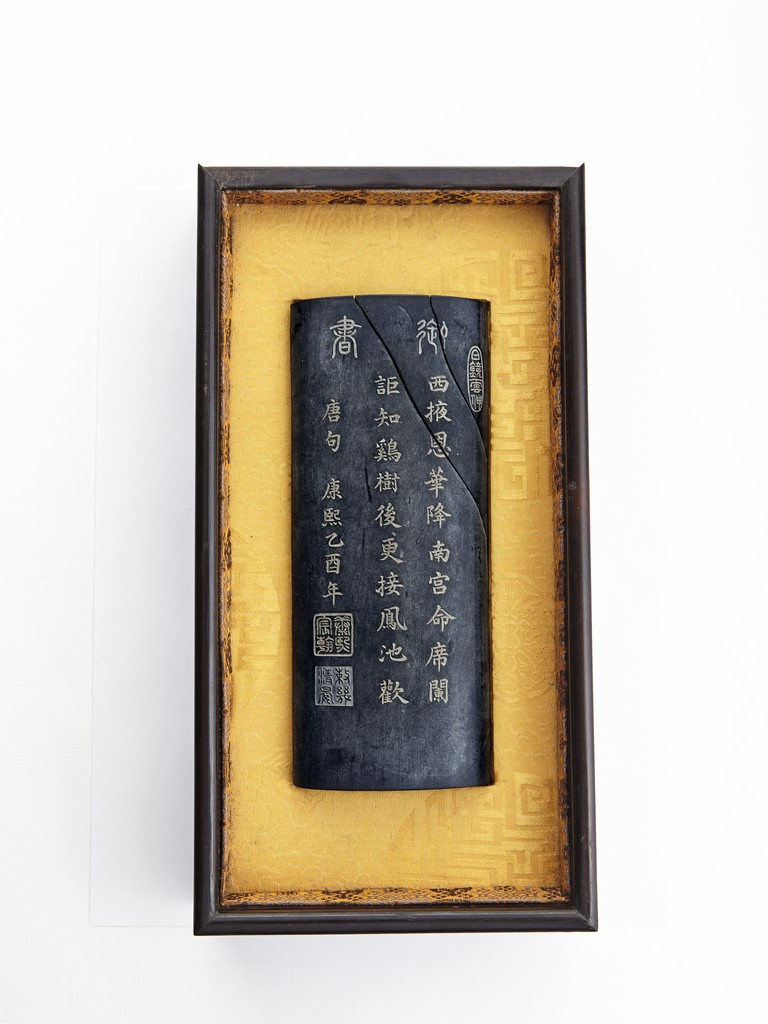 日鏡雲伸
御書
西掖恩華降南宮命席闌
詎知鷄樹後更接鳳池歡
唐句 康熙乙酉年
康熙宸翰
敕幾清晏